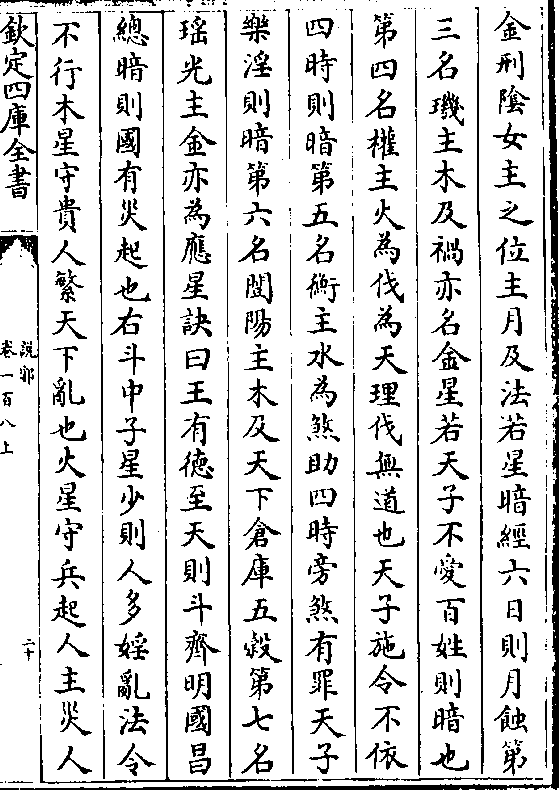 金刑陰女主之位主月及法若星暗經六日則月蝕第
三名璣主木及禍亦名金星若天子不愛百姓則暗也
第四名權主火為伐為天理伐無道也天子施令不依
四時則暗第五名衡主水為煞助四時旁煞有罪天子
樂淫則暗第六名闓陽主木及天下倉庫五穀第七名
瑶光主金亦為應星訣曰王有德至天則斗齊明國昌
總暗則國有災起也右斗中子星少則人多婬亂法令
不行木星守貴人繁天下亂也火星守兵起人主災人
欽定四庫全書
說郛
卷一百八上
二十